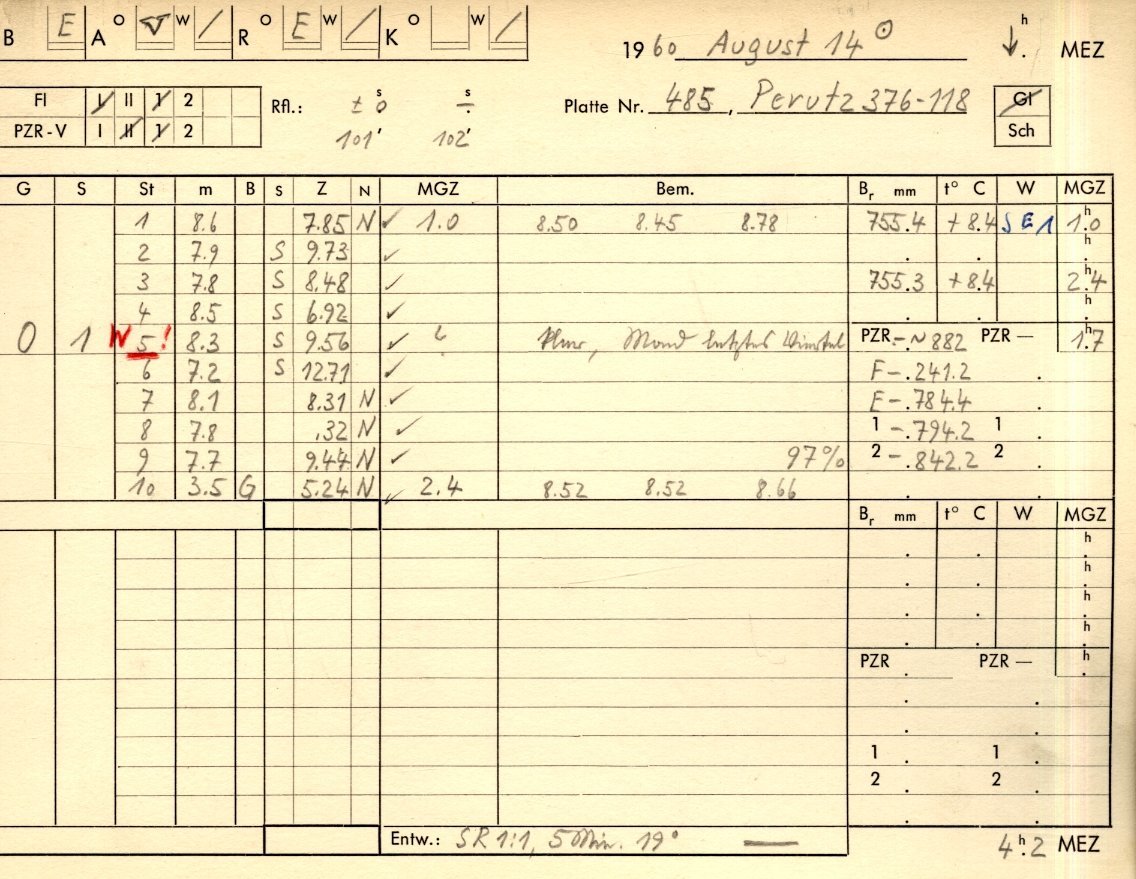 B E A O W / R O E W / K O W /
1960 August 14 ☉ h MEZ
FI I II 1 2 Rfl.: ± 0 s ÷ s Platte Nr. 485, Perutz 376-118 Gl
PZR-V I II 1 2 101' 102' Sch
G S St m B S Z N MGZ Bem. Br mm t° C W MGZ
1 8.6 7.85 N ✓ 1.0 8.50 8.45 8.78 755.4 +8.4 SE1 1.0 h
2 7.9 S 9.73 ✓ h
3 7.8 S 8.48 ✓ 755.3 +8.4 2.4 h
4 8.5 S 6.92 ✓ h
0 1 N 5 ! 8.3 S 9.56 ✓ Mond letztes PZR-.~882 PZR — 1.7 h
6 7.2 S 12.71 ✓ F-.241.2
7 8.1 8.31 N ✓ E-.784.4
8 7.8 .32 N ✓ 1 -.794.2 1
9 7.7 9.44 N ✓ 97% 2 -.842.2 2
10 3.5 G 5.24 N ✓ 2.4 8.52 8.52 8.66
Br mm t° C W MGZ
h
h
h
h
PZR PZR — h
1 1
2 2
Entw.: SR 1:1, 5 Min. 19° — 4 h.2 MEZ